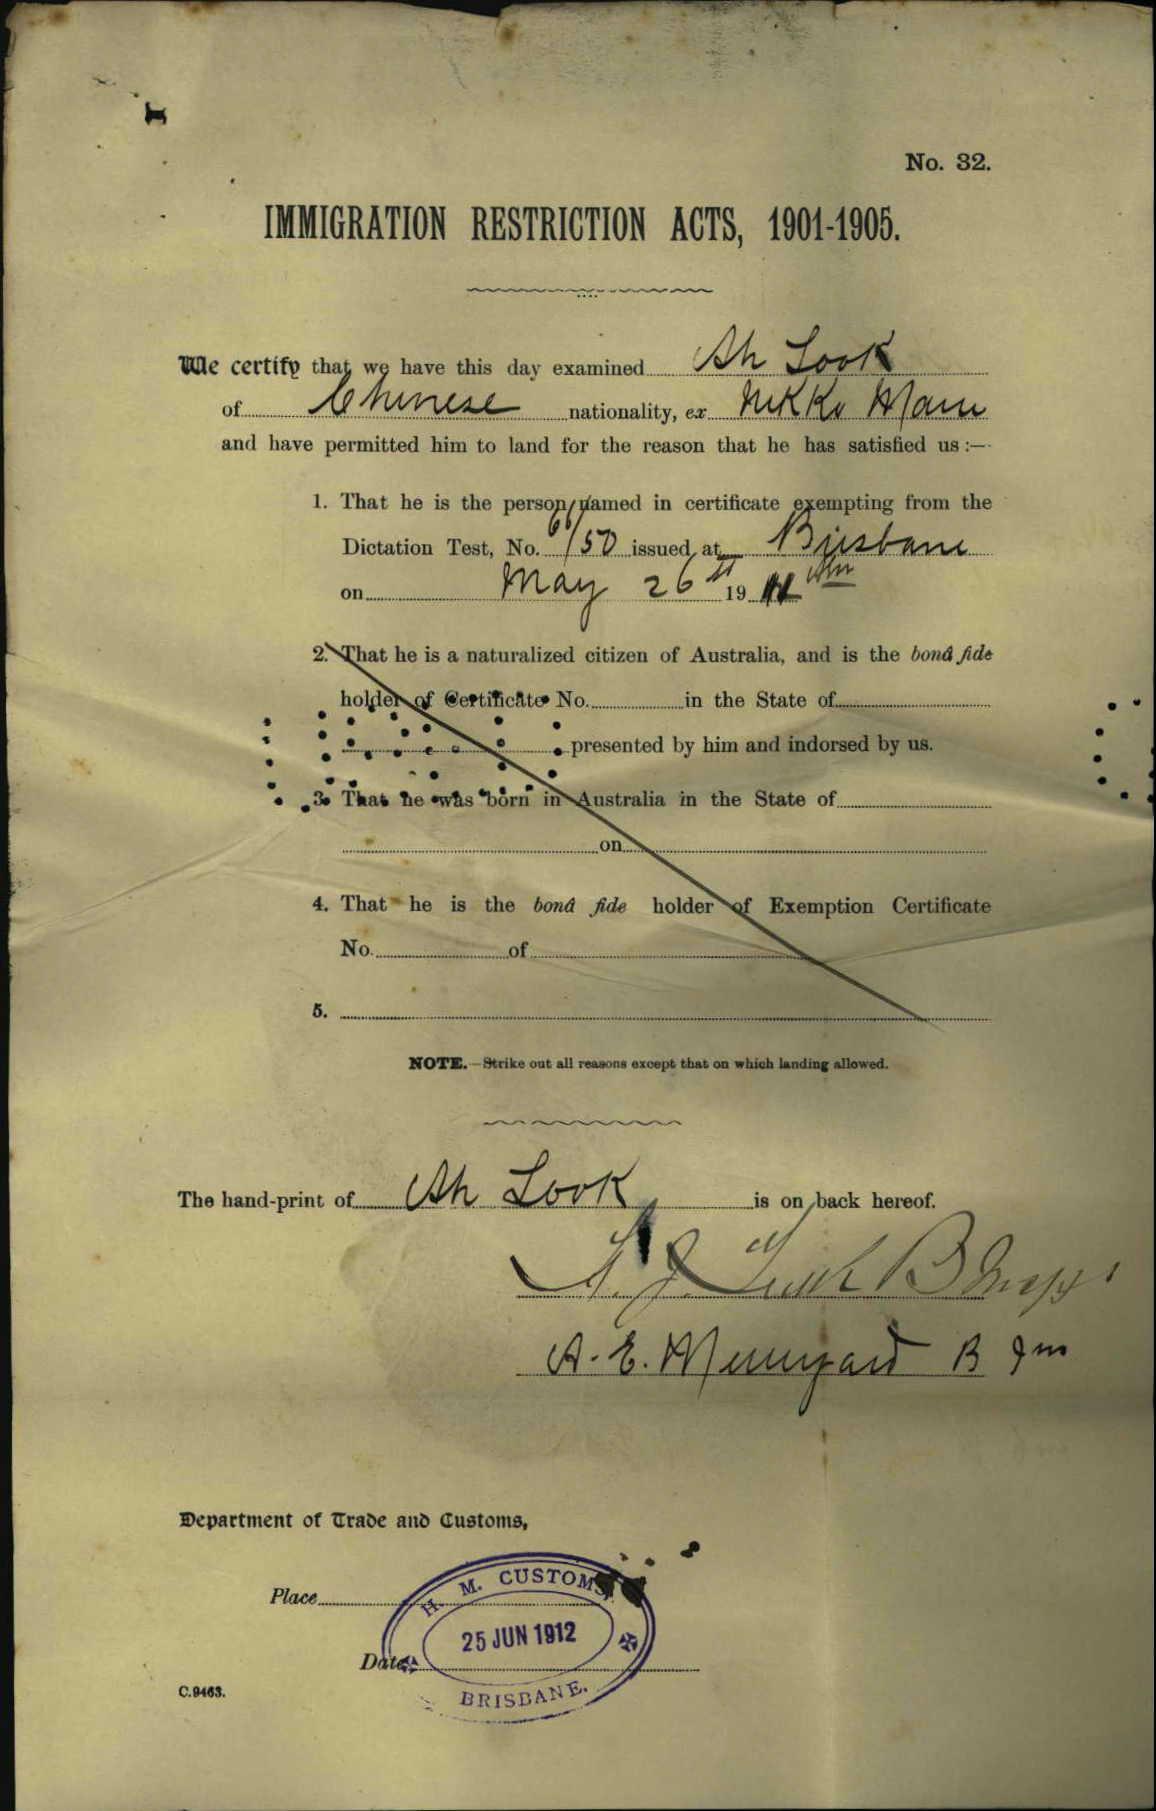 No. 32.
IMMIGRATION RESTRICTION ACTS, 1901-1905.
We certify that we have this day examined Ah Look
of Chinese nationality, ex Nikko Maru
and have permitted him to land for the reason that he has satisfied us :—
1. That he is the person named in certificate exempting from the
Dictation Test, No. 61/50 issued at Brisbane
on May 26th 1911
2. That he is a naturalized citizen of Australia, and is the bonâ fide
holder of Certificate No. in the State of
presented by him and indorsed by us.
3. That he was born in Australia in the State of
on
4. That he is the bonâ fide holder of Exemption Certificate
No. of
5.
NOTE.—Strike out all reasons except that on which landing allowed.
The hand-print of Ah Look is on back hereof.
A. E.
Department of Trade and Customs,
Place
H. M. CUSTOMS,
25 JUN 1912
Date
BRISBANE.
C.9463.